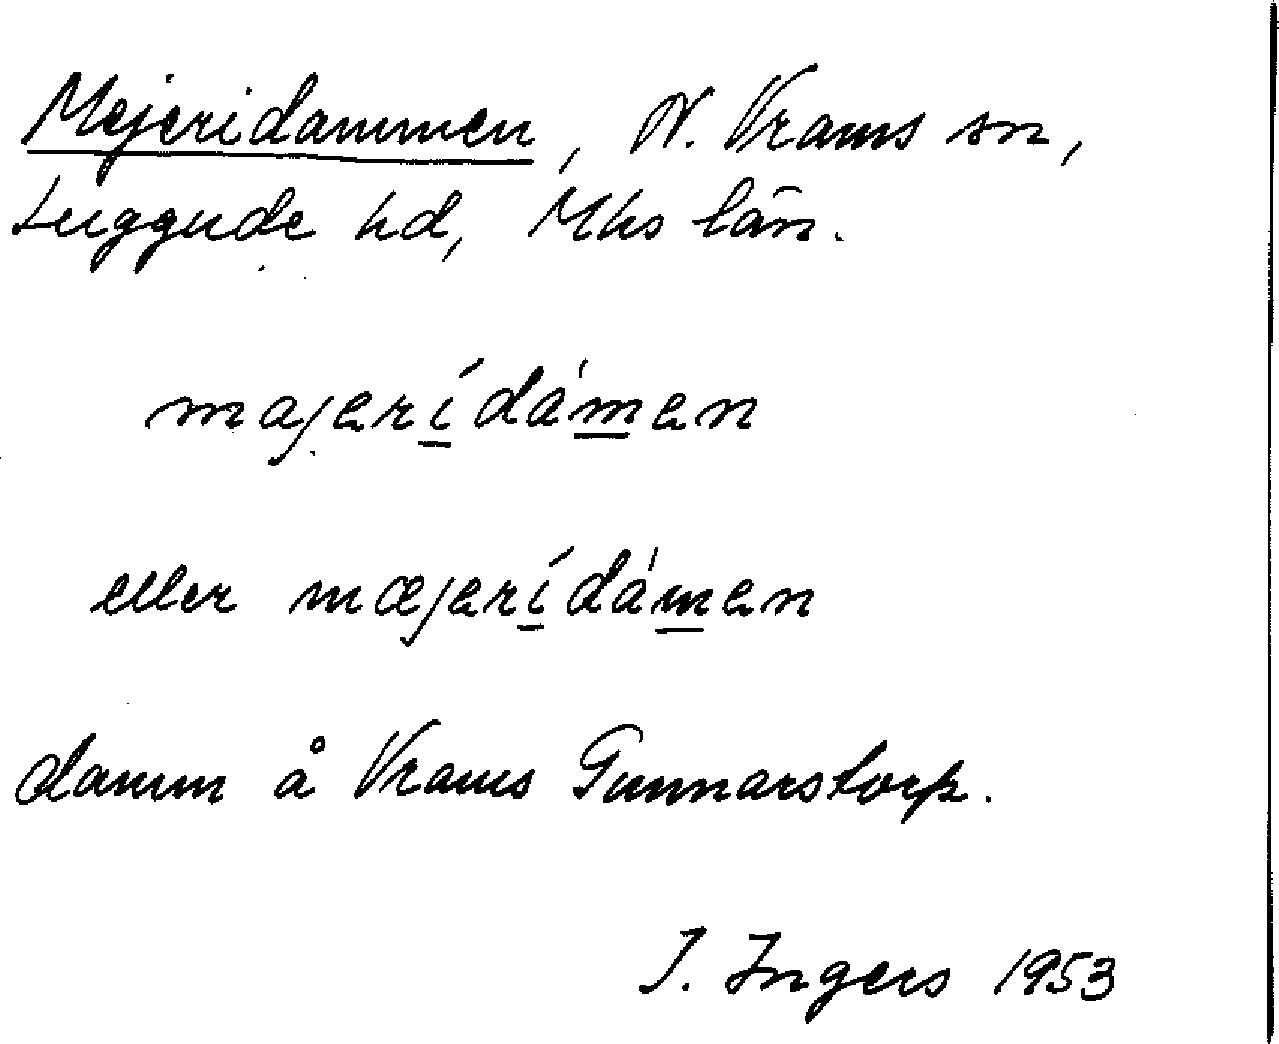 Mejeridammen, N. Vrams sn,
Luggude hd, Mhs län.
majerídámen
eller mæjerídámen
damm å Vrams Gunnarstorp.
I. Ingers 1953